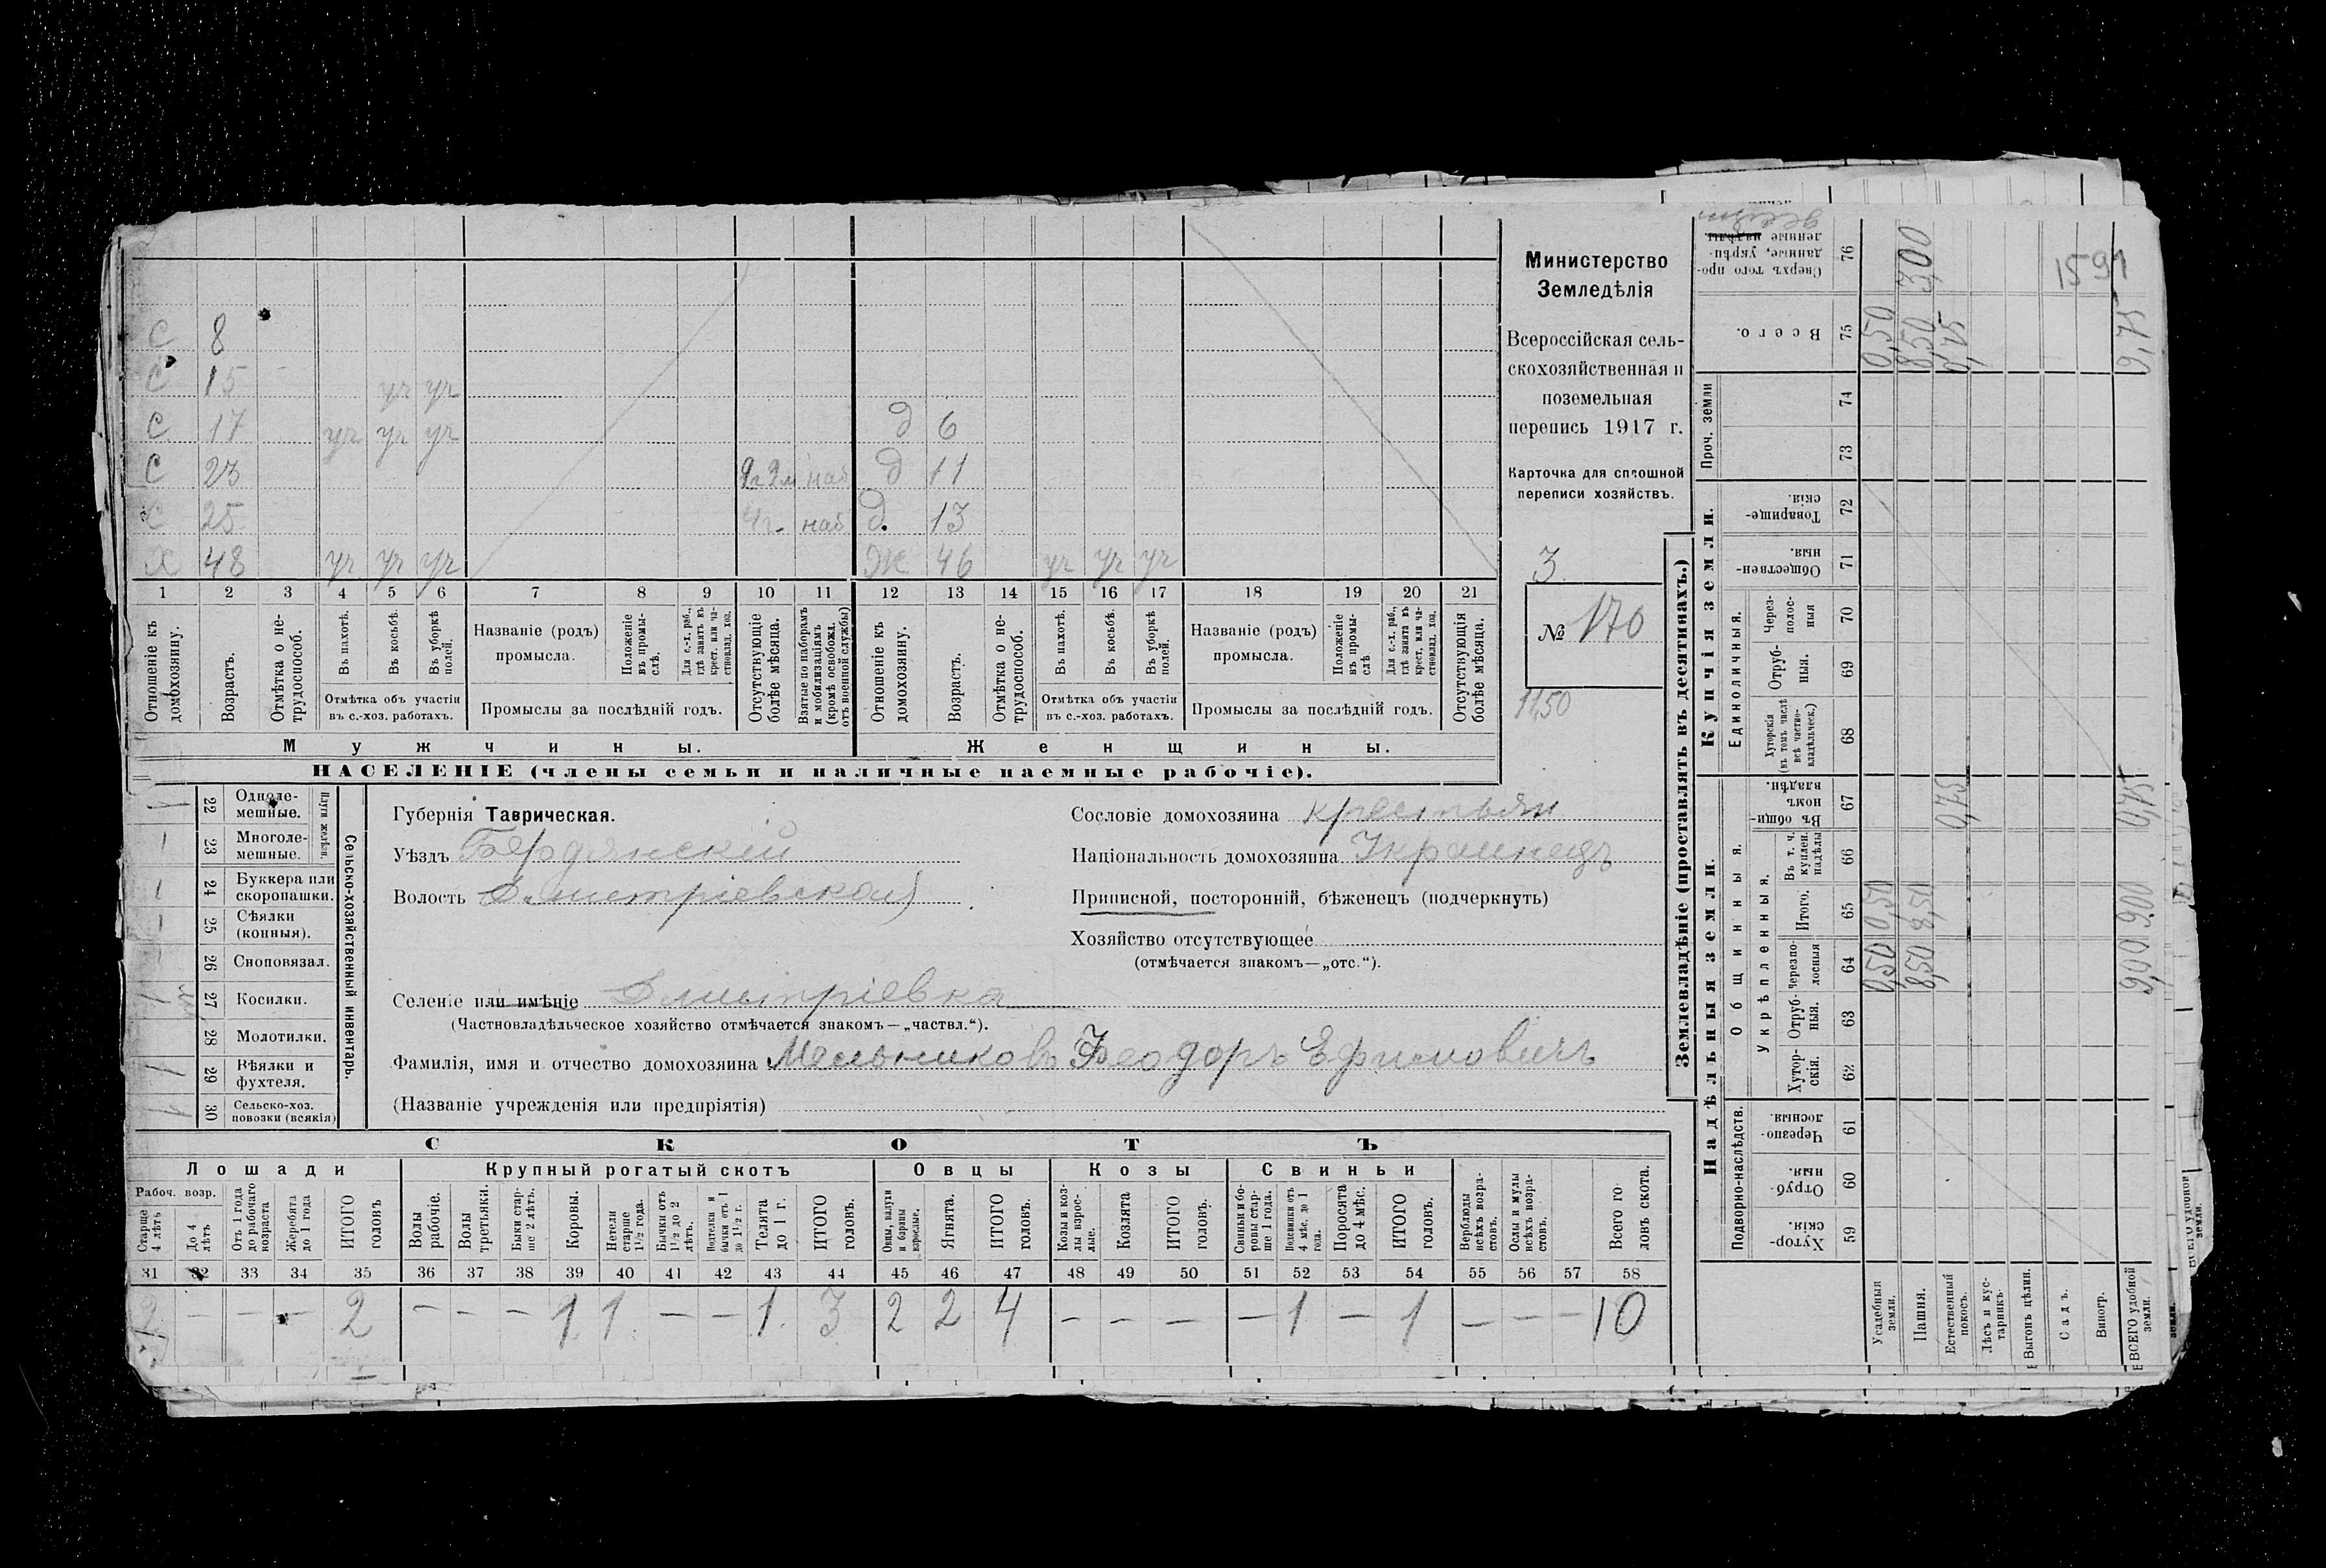 С 8
С 15 уч уч
С 17 уч уч уч д 6
С 23 наб д 11
С 25 наб д. 13
Х 48 уч уч уч Ж 46 уч уч уч
1 2 3 4 5 6 7 8 9 10 11 12 13 14 15 16 17 18 19 20 21
Отношеніе къ домохозяину.
Возрастъ.
Отмѣтка о не-
трудоспособ.
Въ пахотѣ.
Въ косьбѣ.
Въ уборкѣ
полей.
Отмѣтка объ участіи
въ с.-хоз. работахъ.
Названіе (родъ)
промысла.
Положеніе
въ промы-
слѣ.
Для с.-х. раб.,
гдѣ занятъ въ
крест. или ча-
стновлад. хоз.
Промыслы за послѣдній годъ.
Отсутствующіе
болѣе мѣсяца.
Взятые по наборамъ
и мобилизаціямъ
(кромѣ освобожд.
отъ военной службы)
Отношеніе къ
домохозяину.
Возрастъ.
Отмѣтка о не-
трудоспособ.
Въ пахотѣ.
Въ косьбѣ.
Въ уборкѣ
полей.
Отмѣтка объ участіи
въ с.-хоз. работахъ.
Названіе (родъ)
промысла.
Положеніе
въ промы-
слѣ
Для с.-х. раб.,
гдѣ занята въ
крест. или ча-
стновлад. хоз.
Промыслы за послѣдній годъ.
Отсутствующія
болѣе мѣсяца.
Мужчины.
Женщины.
НАСЕЛЕНІЕ (члены семьи и наличные наемные рабочіе).
Министерство
Земледѣлія
Всероссійская сель-
скохозяйственная и
поземельная
перепись 1917 г.
Карточка для сплошной
переписи хозяйствъ.
3
№ 170
1150
1 22 Одноле-
мешные.
1 23 Многоле-
мешные.
Плуги желѣзн.
1 24 Буккера или
скоропашки.
1 25 Сѣялки
(конныя).
26 Сноповязал.
1 27 Косилки.
28 Молотилки.
1 29 Вѣялки и
фухтеля.
1 30 Сельско-хоз.
повозки (всякія)
Сельско-хозяйственный инвентарь.
Губернія Таврическая.
Уѣздъ Бердянскій
Волость Дмитріевская
Селеніе или имѣніе Дмитріевка
(Частновладѣльческое хозяйство отмѣчается знакомъ—„частвл.“).
Фамилія, имя и отчество домохозяина Мельниковъ Феодоръ Ефимовичъ
(Названіе учрежденія или предпріятія)
Сословіе домохозяина крестьян
Національность домохозяина Украинецъ
Приписной, посторонній, бѣженецъ (подчеркнуть)
Хозяйство отсутствующее
(отмѣчается знакомъ—„отс.“).
СКОТЪ
Лошади Крупный рогатый скотъ Овцы Козы Свиньи
Рабоч. возр.
Старше
4 лѣтъ
До 4
лѣтъ
Отъ 1 года
до рабочаго
возраста
Жеребята
до 1 года
ИТОГО
головъ
Волы
рабочіе.
Волы
третьяки.
Быки стар-
ше 2 лѣтъ.
Коровы.
Нетели
старше
1½ года.
Бычки отъ
1½ до 2
лѣтъ.
бычки отъ 1
до 1½ г.
Телята
до 1 г.
ИТОГО
головъ.
Овцы, валухи
и бараны
взрослые.
Ягнята.
ИТОГО
головъ.
Козы и коз-
лы взрос-
лые.
Козлята
ИТОГО
головъ.
Свиньи и бо-
ровы стар-
ше 1 года.
Подсвинки отъ
4 мѣс. до 1
года.
Поросята
до 4 мѣс.
ИТОГО
головъ.
Верблюды
всѣхъ возра-
стовъ.
Ослы и мулы
всѣхъ возра-
стовъ.
Всего го-
ловъ скота.
31 32 33 34 35 36 37 38 39 40 41 42 43 44 45 46 47 48 49 50 51 52 53 54 55 56 57 58
2 — — — 2 — — — 1 1 — — 1 3 2 2 4 — — — — 1 — 1 — — — 10
Землевладѣніе (проставлять въ десятинахъ.)
Надѣльныя земли.
Купчія земли.
Проч. земли
Подворно-наслѣдств.
Общинныя.
Укрѣпленныя.
Единоличныя.
Хутор-
скія. 59
Отруб-
ныя. 60
Черезпо-
лосныя. 61
Хутор-
скія. 62
Отруб-
ныя. 63
Черезпо-
лосныя 64
Итого. 65
Въ т. ч.
куплен.
надѣлы 66
Въ общин-
номъ
владѣн. 67
Хуторскія
(въ томъ числѣ
всѣ частно-
владѣльческ.) 68
Отруб-
ныя. 69
Через-
полос-
ныя 70
Обществен-
ныя. 71
Товарище-
скія. 72
73
74
Всего. 75
Сверхъ того про-
данные, укрѣп-
ленные надѣлы 76
Усадебныя
земли. 0,50 0,50 0,50
Пашня. 8,50 8,50 8,50 3,00
Естественный
покосъ. 0,75 0,75
Лѣсъ и кус-
тарникъ.
Выгонъ цѣлин.
Садъ.
Виногр.
ВСЕГО удобной
земли. 9,00 9,00 0,75 9,75
1591